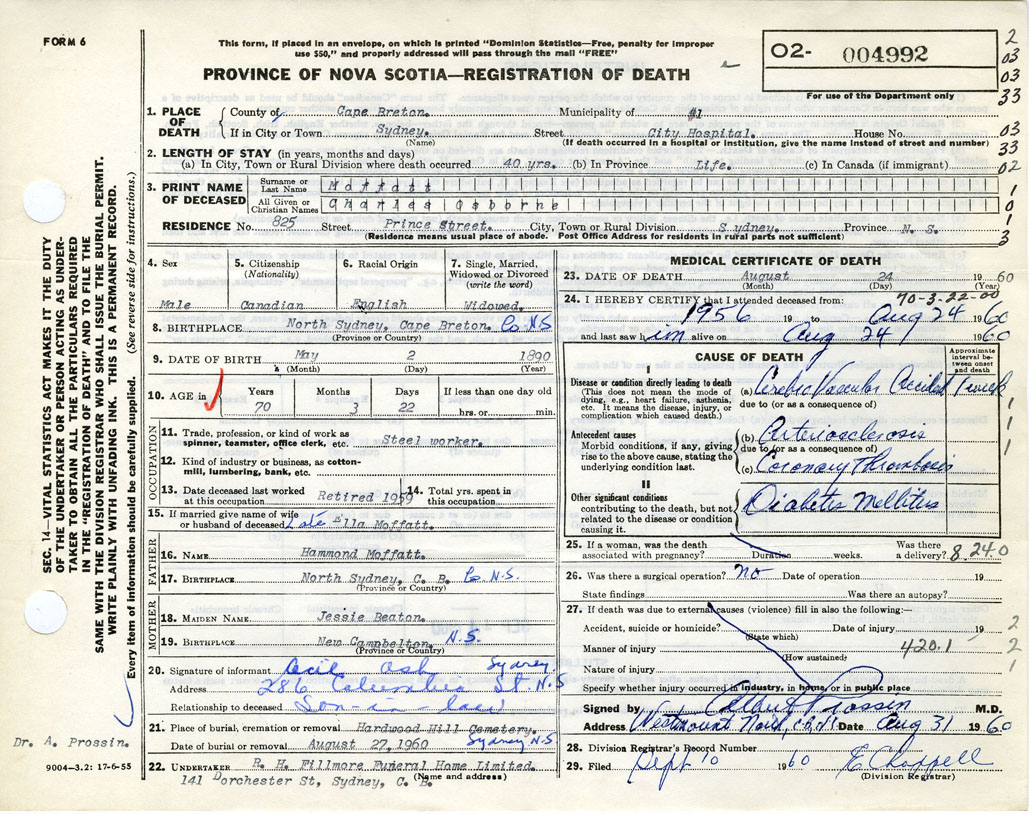 FORM 6
This form, if placed in an envelope, on which is printed "Dominion Statistics—Free, penalty for improper
use $50," and properly addressed will pass through the mail "FREE"
PROVINCE OF NOVA SCOTIA—REGISTRATION OF DEATH
02- 004992
For use of the Department only
2
03
03
33
03
33
02
1
0
1
3
1. PLACE OF DEATH
County of Cape Breton. Municipality of #1
If in City or Town Sydney. Street City Hospital. House No.
(Name) (If death occurred in a hospital or institution, give the name instead of street and number)
2. LENGTH OF STAY (in years, months and days)
(a) In City, Town or Rural Division where death occurred 40 yrs. (b) In Province Life. (c) In Canada (if immigrant)
3. PRINT NAME OF DECEASED
Surname or Last Name Moffatt
All Given or Christian Names Charles Osborne
RESIDENCE No. 825 Street Prince Street. City, Town or Rural Division Sydney. Province N. S.
(Residence means usual place of abode. Post Office Address for residents in rural parts not sufficient)
4. Sex
Male
5. Citizenship
(Nationality)
Canadian
6. Racial Origin
English
7. Single, Married,
Widowed or Divorced
(write the word)
Widowed.
8. BIRTHPLACE North Sydney, Cape Breton. Co N.S
(Province or Country)
9. DATE OF BIRTH May 2 1890
(Month) (Day) (Year)
10. AGE in
Years Months Days If less than one day old
70 3 22 hrs. or min.
OCCUPATION
11. Trade, profession, or kind of work as
spinner, teamster, office clerk, etc. Steel worker.
12. Kind of industry or business, as cotton-
mill, lumbering, bank, etc.
13. Date deceased last worked
at this occupation Retired 1950
14. Total yrs. spent in
this occupation
15. If married give name of wife
or husband of deceased Late Ella Moffatt.
FATHER
16. NAME Hammond Moffatt.
17. BIRTHPLACE North Sydney, C. B. Co N.S.
(Province or Country)
MOTHER
18. MAIDEN NAME Jessie Beaton.
19. BIRTHPLACE New Campbelton. N.S.
(Province or Country)
20. Signature of informant Cecil Ash Sydney
Address 286 Columbia St. N.S
Relationship to deceased Son-in-law
21. Place of burial, cremation or removal Hardwood Hill Cemetery.
Date of burial or removal August 27, 1960 Sydney N.S
22. UNDERTAKER R. H. Fillmore Funeral Home Limited.
141 Dorchester St, Sydney, C. B.
(Name and address)
MEDICAL CERTIFICATE OF DEATH
23. DATE OF DEATH August 24 1960
(Month) (Day) (Year)
24. I HEREBY CERTIFY that I attended deceased from: 70-3-22-00
1956 19 to Aug 24 1960
and last saw him alive on Aug 24 1960
CAUSE OF DEATH
Approximate interval between onset and death
I
Disease or condition directly leading to death
(This does not mean the mode of dying, e.g., heart failure, asthenia, etc. It means the disease, injury, or complication which caused death.)
(a) Cerebro Vascular Accident
due to (or as a consequence of)
Antecedent causes
Morbid conditions, if any, giving rise to the above cause, stating the underlying condition last.
(b) Arteriosclerosis
due to (or as a consequence of)
(c) Coronary Thrombosis
II
Other significant conditions
contributing to the death, but not related to the disease or condition causing it.
Diabetis Mellitus
25. If a woman, was the death
associated with pregnancy? Duration weeks. Was there a delivery? 8.24-0
26. Was there a surgical operation? no Date of operation 19
State findings Was there an autopsy?
27. If death was due to external causes (violence) fill in also the following:—
Accident, suicide or homicide? Date of injury 19
(State which)
Manner of injury 420.1
(How sustained)
Nature of injury
2
2
1
Specify whether injury occurred in industry, in home, or in public place
Signed by Albert Prossin M.D.
Address Westmount Road, Date Aug 31 1960
28. Division Registrar's Record Number
29. Filed Sept 10 1960 E Chappell
(Division Registrar)
SEC. 14—VITAL STATISTICS ACT MAKES IT THE DUTY
OF THE UNDERTAKER OR PERSON ACTING AS UNDER-
TAKER TO OBTAIN ALL THE PARTICULARS REQUIRED
IN THE "REGISTRATION OF DEATH" AND TO FILE THE
SAME WITH THE DIVISION REGISTRAR WHO SHALL ISSUE THE BURIAL PERMIT.
WRITE PLAINLY WITH UNFADING INK. THIS IS A PERMANENT RECORD.
Every item of information should be carefully supplied. (See reverse side for instructions.)
Dr. A. Prossin.
9004-3.2: 17-6-55